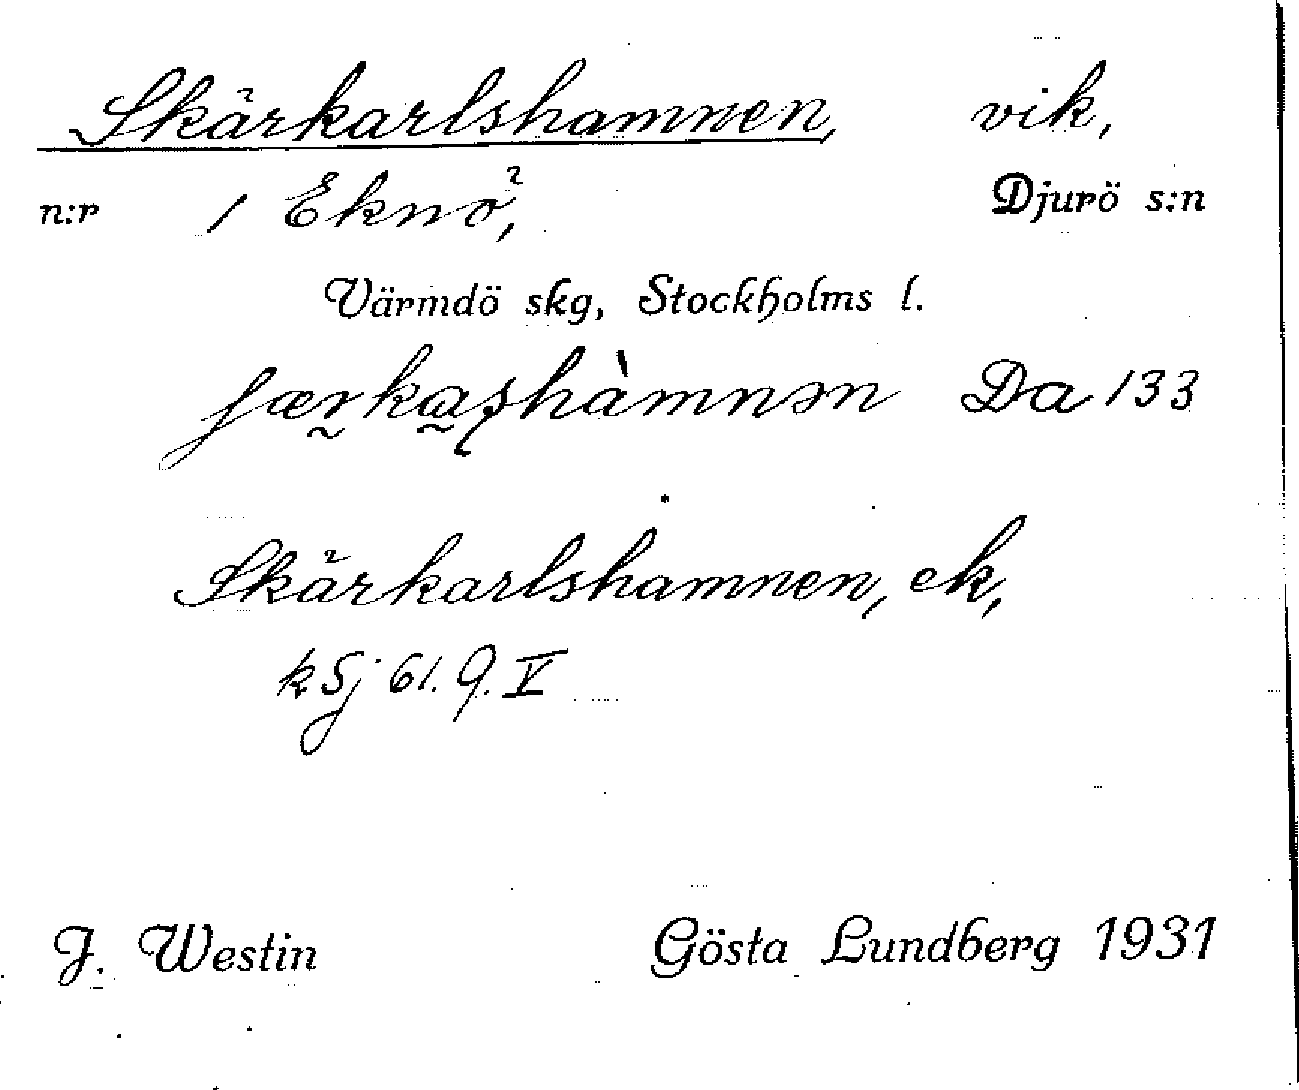 Skärkarlshamnen, vik,
n:r 1 Eknö, Djurö s:n
Värmdö skg, Stockholms l.
Da 133
Skärkarlshamnen, ek,
k Sj 61. 9. V
J. Westin Gösta Lundberg 1931